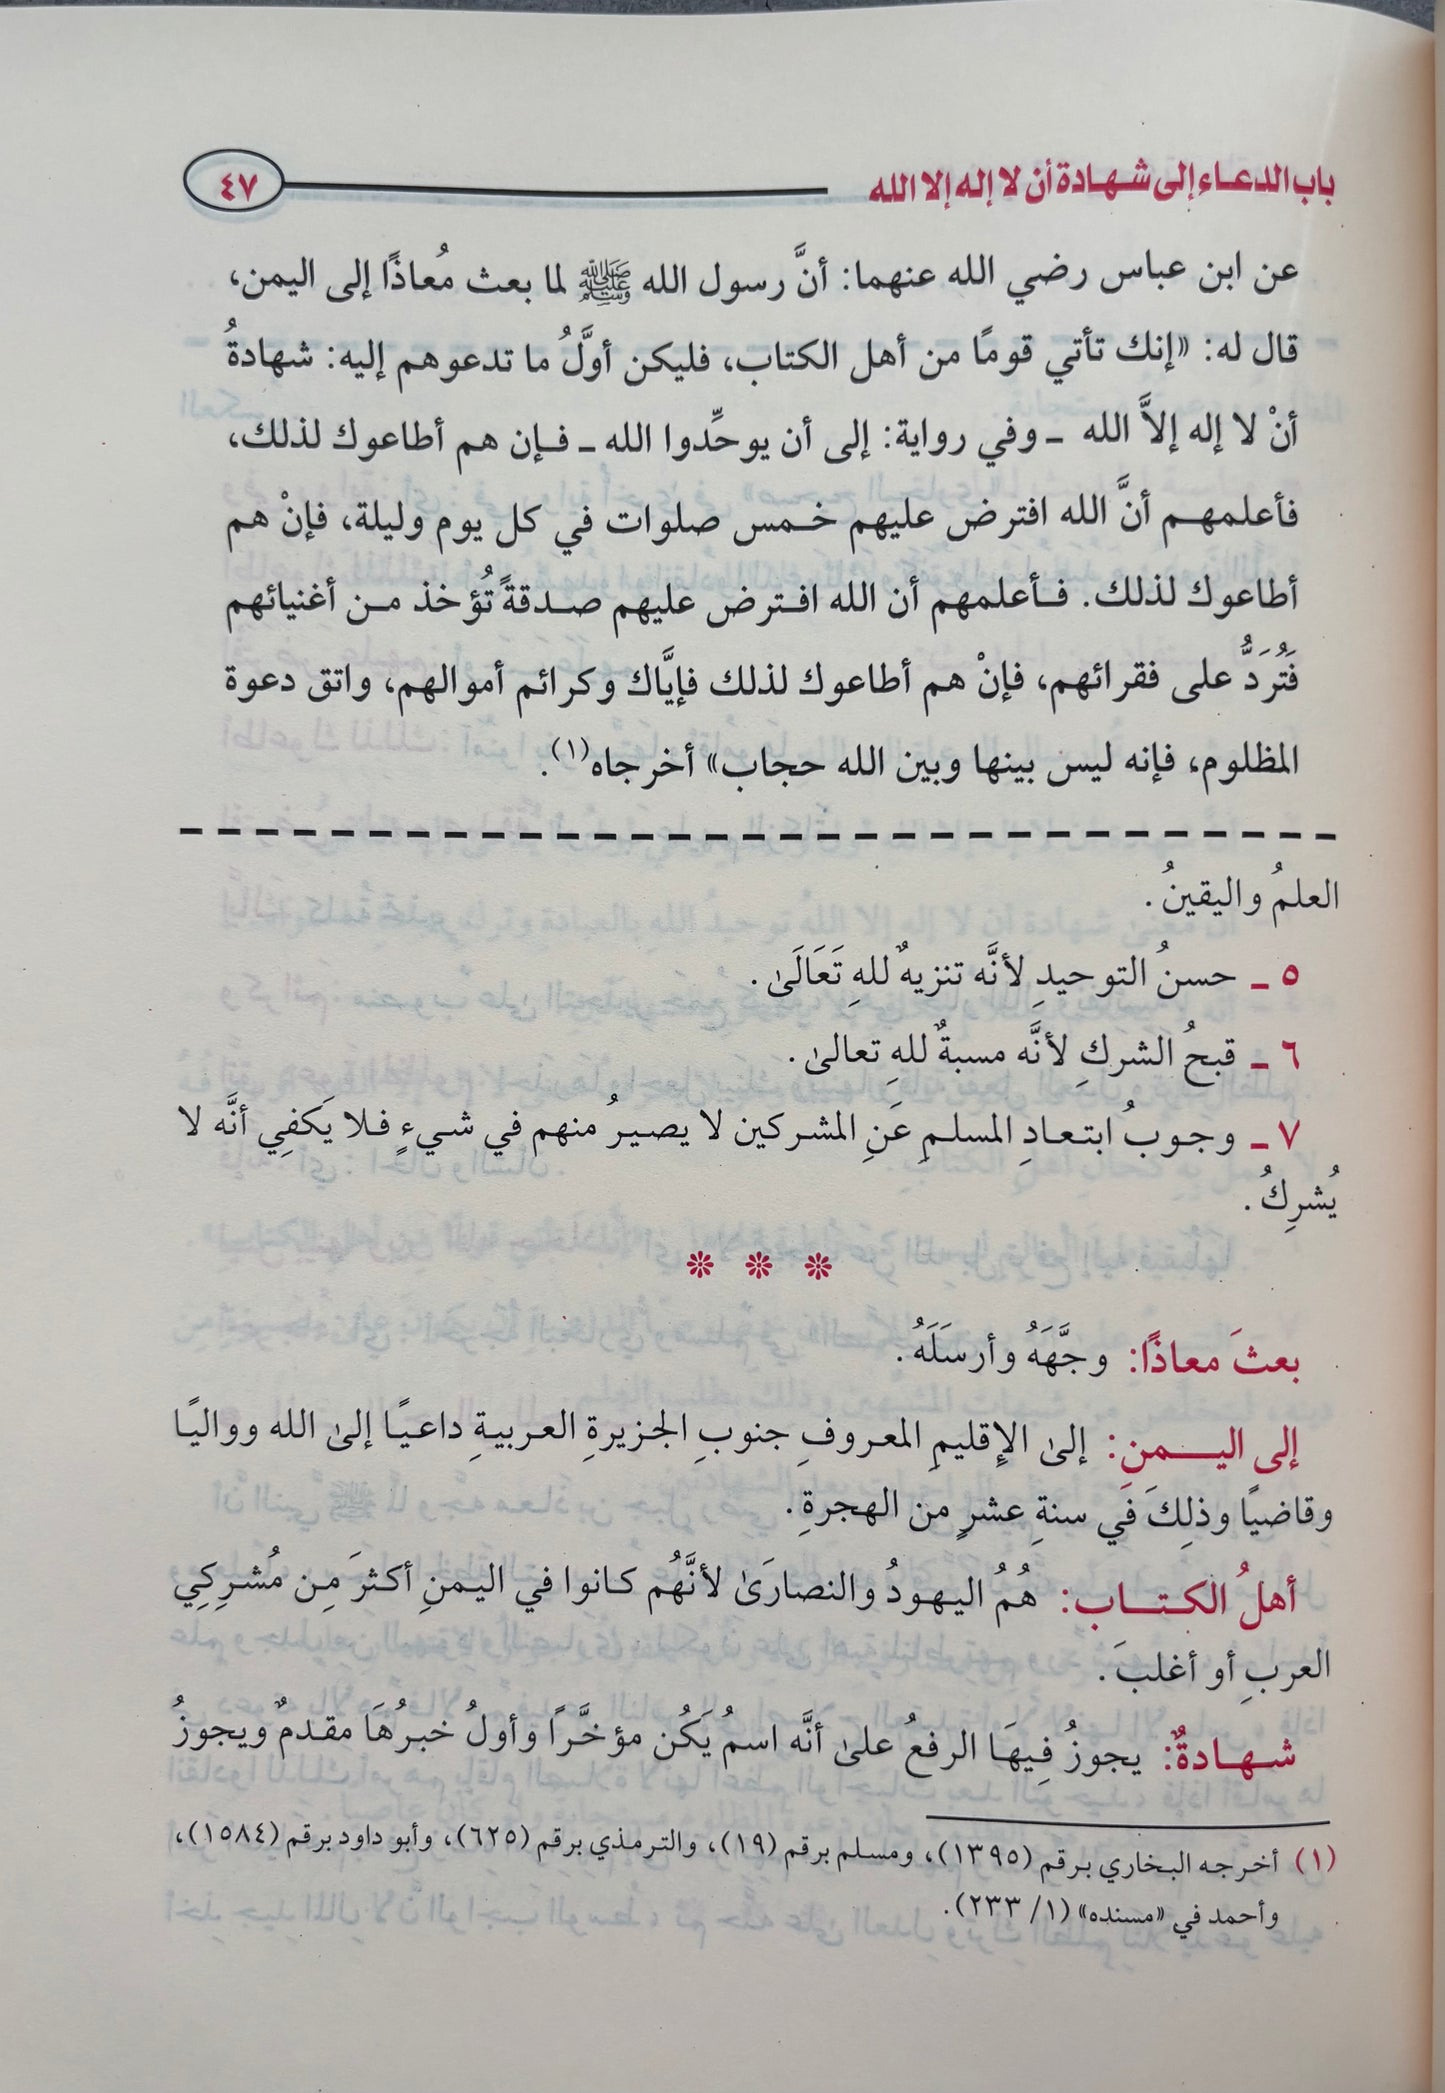 باب الدعاء إلى شهادة أن لا إله إلا الله
٤٧
عن ابن عباس رضي الله عنهما: أنَّ رسول الله ﷺ لما بعث مُعاذًا إلى اليمن،
قال له: «إنك تأتي قومًا من أهل الكتاب، فليكن أوَّلُ ما تدعوهم إليه: شهادةُ
أنْ لا إله إلاَّ الله ـ وفي رواية: إلى أن يوحِّدوا الله ـ فإن هم أطاعوك لذلك،
فأعلمهم أنَّ الله افترض عليهم خمس صلوات في كل يوم وليلة، فإنْ هم
أطاعوك لذلك. فأعلمهم أن الله افترض عليهم صدقةً تُؤخذ من أغنيائهم
فَتُرَدُّ على فقرائهم، فإنْ هم أطاعوك لذلك فإيَّاك وكرائم أموالهم، واتق دعوة
المظلوم، فإنه ليس بينها وبين الله حجاب» أخرجاه(١).
العلمُ واليقينُ.
٥ ـ حسنُ التوحيدِ لأنَّه تنزيهٌ للهِ تَعَالَىٰ.
٦ ـ قبحُ الشركِ لأنَّه مسبةٌ للهِ تعالىٰ.
٧ ـ وجوبُ ابتعادِ المسلمِ عَنِ المشركين لا يصيرُ منهم في شيءٍ فلا يَكفِي أنَّه لا
يُشرِكُ.
بعثَ معاذًا: وجَّهَهُ وأرسَلَهُ.
إلى اليمنِ: إلىٰ الإقليمِ المعروفِ جنوبِ الجزيرةِ العربيةِ داعيًا إلىٰ الله وواليًا
وقاضيًا وذلِكَ فَي سنةِ عشرٍ من الهجرةِ.
أهلُ الكتاب: هُمُ اليهودُ والنصارَىٰ لأنَّهُم كانوا في اليمنِ أكثرَ مِن مُشرِكِي
العربِ أو أغلبَ.
شهادةٌ: يجوزُ فِيهَا الرفعُ علىٰ أنَّه اسمُ يَكُن مؤخَّرًا وأولُ خبرُهَا مقدمٌ ويجوزُ
(١) أخرجه البخاري برقم (١٣٩٥)، ومسلم برقم (١٩)، والترمذي برقم (٦٢٥)، وأبو داود برقم (١٥٨٤)،
وأحمد في «مسنده» (١/ ٢٣٣).